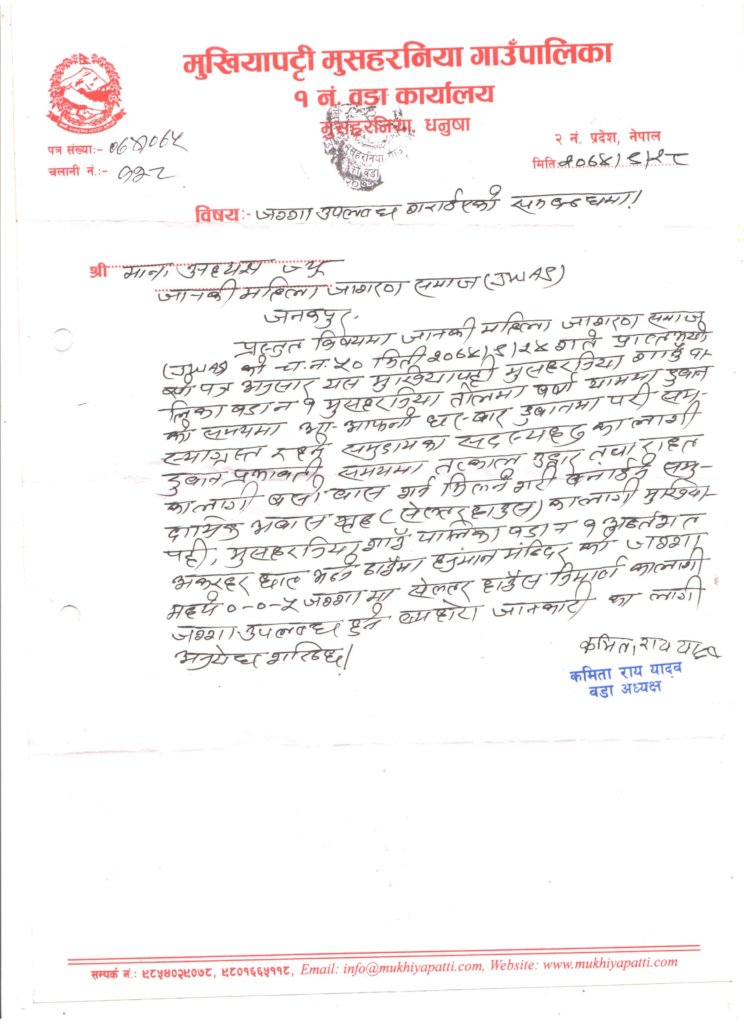 मुखियापट्टी मुसहरनिया गाउँपालिका
१ नं. वडा कार्यालय
मुसहरनिया, धनुषा
२ नं. प्रदेश, नेपाल
पत्र संख्याः- ०७४०७५
मितिः २०७४/९/२८
चलानी नं.:- ११८
विषयः- जग्गा उपलब्ध गराईएको सम्बन्धमा।
श्री मान. अध्यक्ष ज्यू
जानकी महिला जागरण समाज (JWAS)
जनकपुर
प्रस्तुत विषयमा जानकी महिला जागरण समाज
(JWAS) को च.न. ५० मिती २०७४/९/२४ गते प्राप्त भयो
पत्र अनुसार यस मुखियापट्टी मुसहरनिया गाउँ पा-
लिका वडा न १ मुसहरनिया तोलमा वर्षा याममा डुवान
को समयमा आ-आफनो घर-बार डुवानमा परी सम-
स्याग्रस्त रहने समुदायका सदस्यहरु का लागी
डुवान प्रकोपको समयमा तत्काल उद्दार तथा राहत
का लागी बसोवास गर्न मिलने गरी बनाईने समु-
दायिक अवास गृह (सेल्टर हाउस) का लागी मुखिया-
पट्टी, मुसहरनिया गाउँ पालिका वडा न १ अन्तर्गत
घाट भन्ने ठाउँमा हनुमान मंदिर को जग्गा
मध्ये ०-०-५ जग्गा मा सेल्टर हाउस निर्माण का लागी
जग्गा उपलब्ध हुने व्यहोरा जानकारी का लागी
अनुरोध गरिन्छ।
कमिता राय यादव
कमिता राय यादव
वडा अध्यक्ष
सम्पर्क नं.: ९८५४०२९०७८, ९८०१६६५११८, Email: info@mukhiyapatti.com, Website: www.mukhiyapatti.com